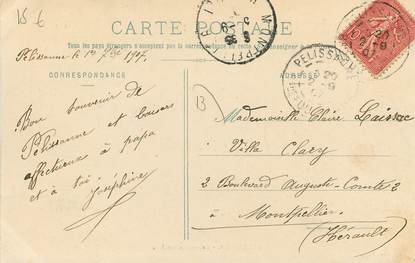 15 6
CARTE POSTALE
Tous les pays étrangers n'acceptent pas la correspondance au recto
Pélissanne le 1er 7bre 1907.
CORRESPONDANCE
Bon souvenir de
Pélissanne et baisers
affectueux à papa
et à toi Joséphine
ADRESSE
13
Mademoiselle Claire Laissac
Villa Clary
2 Boulevard Auguste-Comte 2
à Montpellier
(Hérault)
PELISSANNE